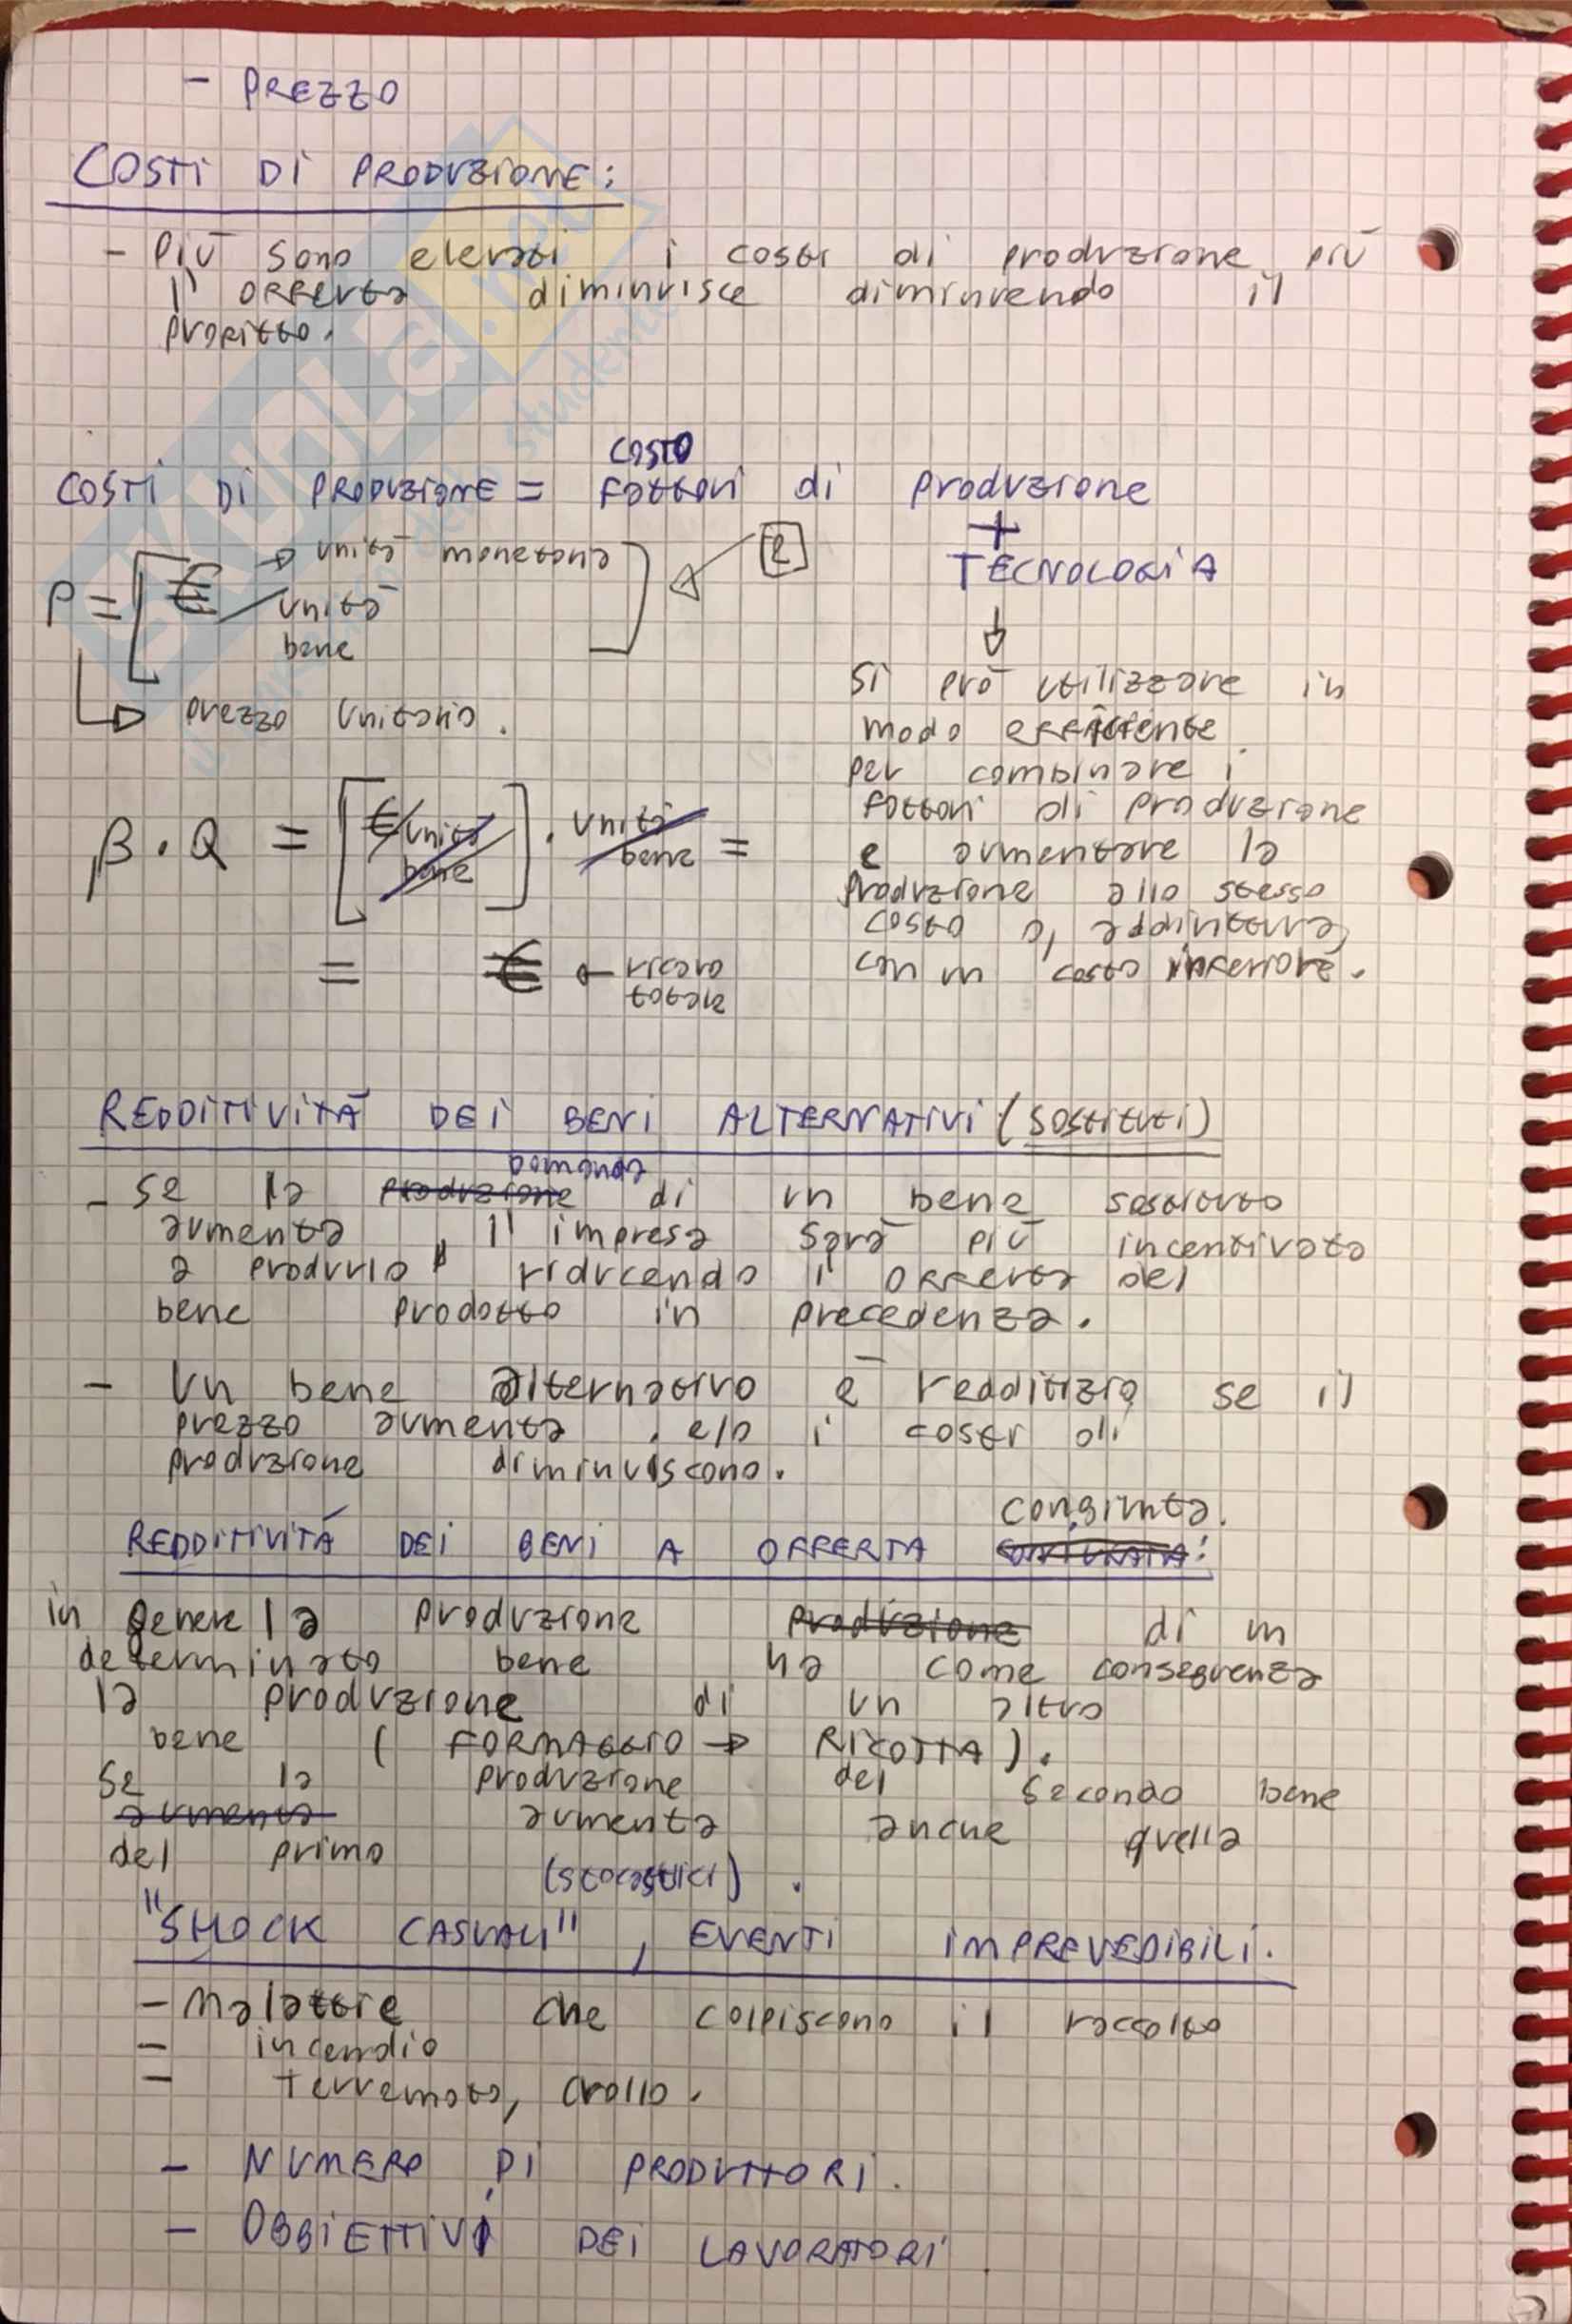 - PREZZO
COSTI DI PRODUZIONE:
- Più sono elevati i costi di produzione più
l'offerta diminuisce diminuendo il
profitto.
costo
COSTI DI PRODUZIONE = fattori di produzione
+
TECNOLOGIA
P = [€/unità bene] → unità monetaria
2
↳ prezzo unitario.
si può utilizzare in
modo efficiente
per combinare i
fattori di produzione
e aumentare la
produzione allo stesso
costo o, addirittura,
con un costo inferiore.
P · Q = [€/unità bene] · unità bene =
= € ← ricavo
totale
REDDITIVITÀ DEI BENI ALTERNATIVI (sostituti)
domanda
- se la produzione di un bene sostituto
aumenta, l'impresa sarà più incentivata
a produrlo riducendo l'offerta del
bene prodotto in precedenza.
- Un bene alternativo è redditizio se il
prezzo aumenta e/o i costi di
produzione diminuiscono.
congiunta.
REDDITIVITÀ DEI BENI A OFFERTA
in genere la produzione produzione di un
determinato bene ha come conseguenza
la produzione di un altro
bene (FORMAGGIO → RICOTTA).
se la produzione del secondo bene
aumenta aumenta anche quella
del primo
(stocastici).
"SHOCK CASUALI", EVENTI IMPREVEDIBILI.
- Malattie che colpiscono il raccolto
- incendio
- terremoto, crollo.
- NUMERO DI PRODUTTORI.
- OBBIETTIVI DEI LAVORATORI.